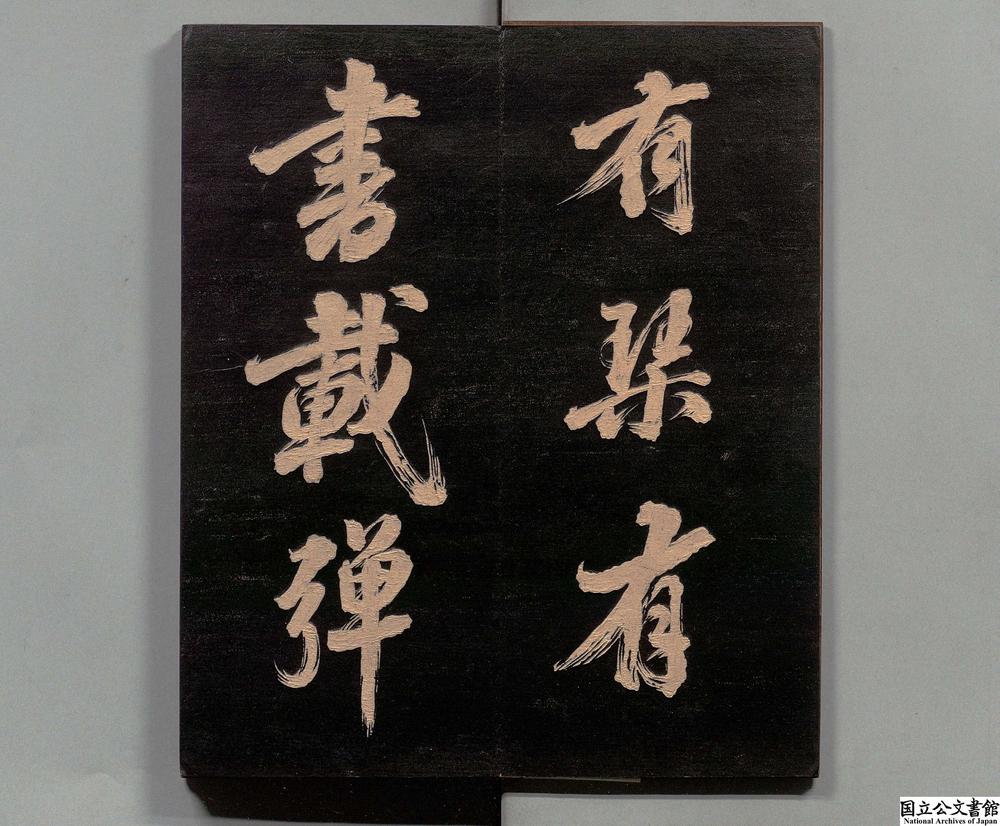 有琴有
書載弾
国立公文書館
National Archives of Japan